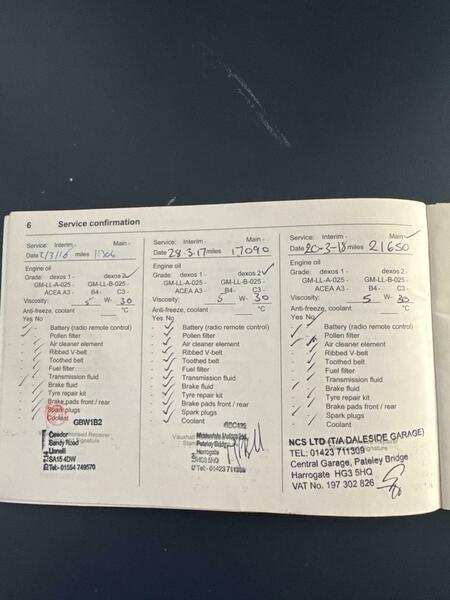 6 Service confirmation
Service: Interim - Main -
Date 2/3/16 miles 11306
Engine oil
Grade: dexos 1 - dexos 2 ✓
GM-LL-A-025 - GM-LL-B-025 -
ACEA A3 - B4- C3 -
Viscosity: 5 W- 30
Anti-freeze, coolant °C
Yes No
Battery (radio remote control)
Pollen filter
Air cleaner element
Ribbed V-belt
Toothed belt
Fuel filter
Transmission fluid
Brake fluid
Tyre repair kit
Brake pads front / rear
Spark plugs
Coolant
GBW1B2
Sandy Road
Llanelli
SA15 4DW
Tel: 01554 749570
Service: Interim - Main -
Date 28.3.17 miles 17090
Engine oil
Grade: dexos 1 - dexos 2 ✓
GM-LL-A-025 - GM-LL-B-025 -
ACEA A3 - B4- C3 -
Viscosity: 5 W- 30
Anti-freeze, coolant °C
Yes No
Battery (radio remote control)
Pollen filter
Air cleaner element
Ribbed V-belt
Toothed belt
Fuel filter
Transmission fluid
Brake fluid
Tyre repair kit
Brake pads front / rear
Spark plugs
Coolant
Vauxhall
Pateley Bridge
Harrogate
HG3 5HQ
Tel: 01423 711309
Service: Interim - Main - ✓
Date 20-3-18 miles 21650
Engine oil
Grade: dexos 1 - dexos 2 -
GM-LL-A-025 - GM-LL-B-025 -
ACEA A3 - B4- C3 -
Viscosity: 5 W- 30
Anti-freeze, coolant °C
Yes No
Battery (radio remote control)
Pollen filter
Air cleaner element
Ribbed V-belt
Toothed belt
Fuel filter
Transmission fluid
Brake fluid
Tyre repair kit
Brake pads front / rear
Spark plugs
Coolant
NCS LTD (T/A DALESIDE GARAGE)
TEL: 01423 711309
Central Garage, Pateley Bridge
Harrogate HG3 5HQ
VAT No. 197 302 826